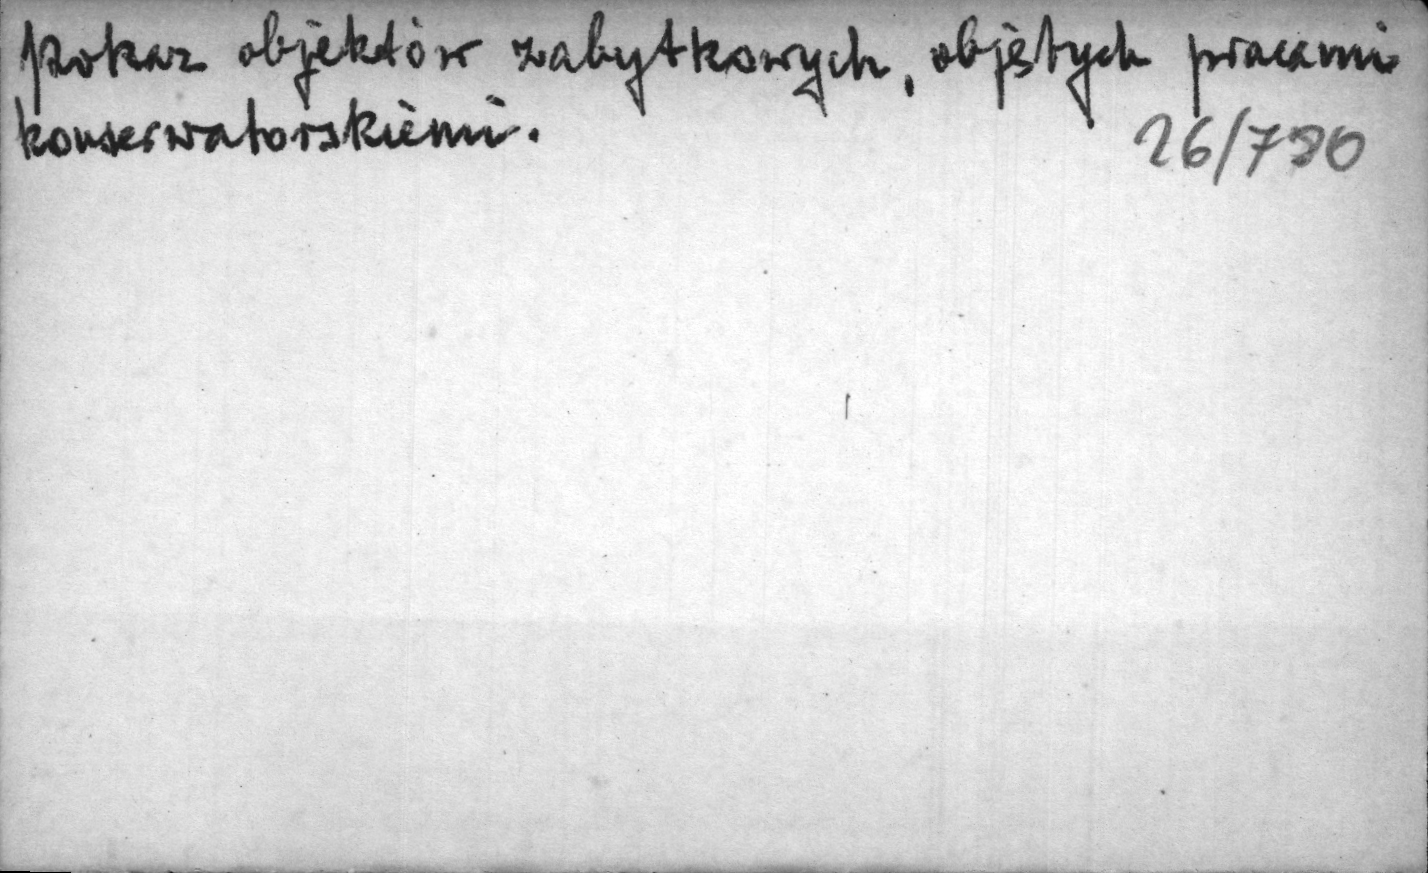 Pokaz objektów zabytkowych, objętych pracami
konserwatorskiemi.
26/780